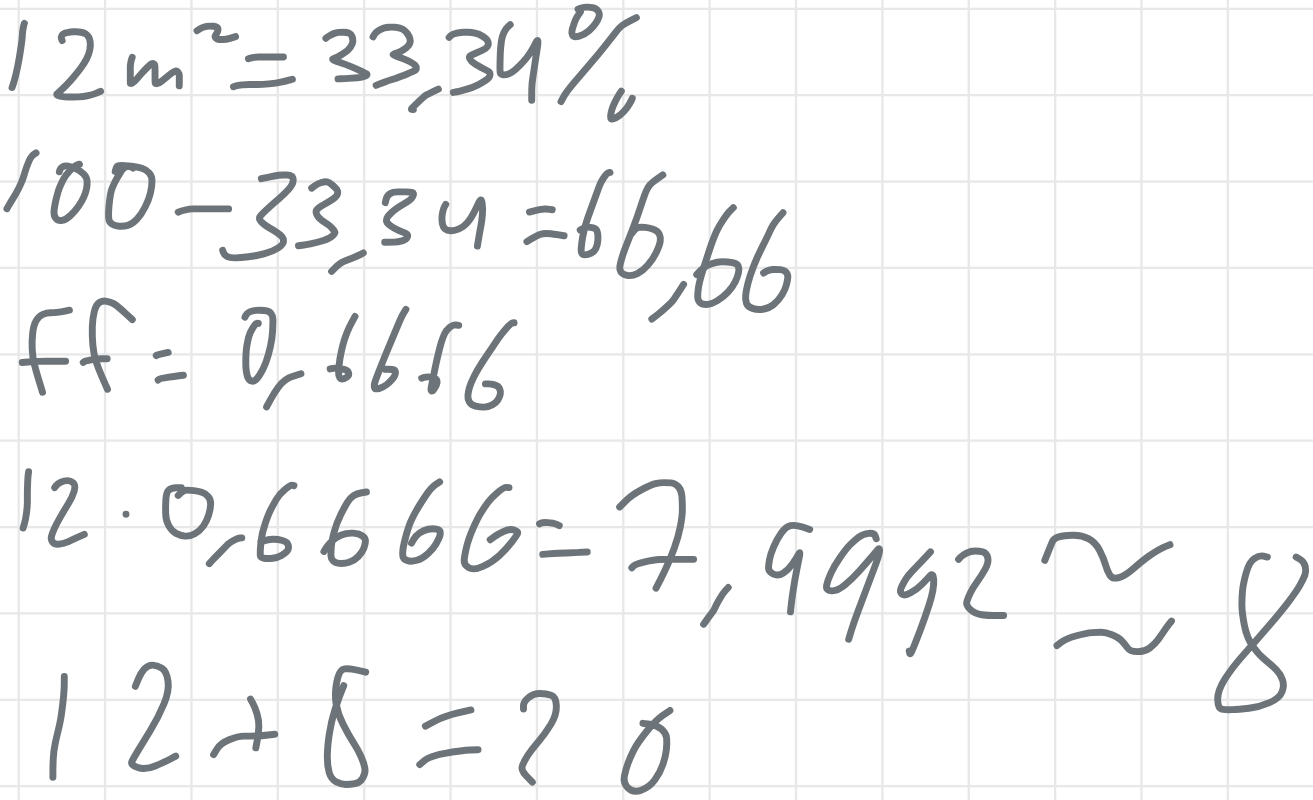 12 m² = 33,34%
100 - 33,34 = 66,66
ff = 0,6666
12 · 0,6666 = 7,9992 ≈ 8
12 + 8 = 20